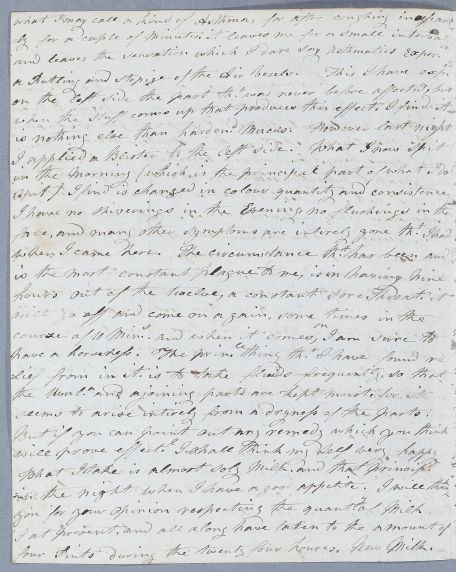 what I may call a kind of Asthma, for after coughing
ly for a cuple of Minutes it leaves me for a small interval
and leaves the sensation which I dare say Asthmatics
a Rutling and stopige of the Air vesels. This I have
on the left side the part tht. was never before affected, but
when the stuff comes up that produces this effect, I find it
is nothing else than harden'd Mucus. However last night
I applied a blister to the left side. What I now spit
in the morning (which is the principal part of what I do
spit) I find is changed in colour quantity and consistence
I have no shiverings in the Evening, no flushings in the
face, and many other symptoms are intirely gone tht. I had
when I came here. The circumstance tht. has been and
is the most constant plague to me, is in having nine
hours out of the twelve, a constant Sore Throat; it
will go off and come on again, some times in the
course of 10 Mins. and when it comes on, I am sure to
have a horseness. The prin. thing tht. I have found re
lief from in it is to take fluids frequently, so that
the Uvula and ajoining parts are kept moist, for it
seems to arise intirely from a dryness of the parts.
But if you can point out any remedy which you think
will prove effectl. I shall think my self very happy
What I take is almost soly Milk and that
the night when I have a goo appetite. I will
you for your opinion respecting the quantity of Milk.
I at present, and all along have taken to the amount of
four Pints during the twenty four houres. New Milk.